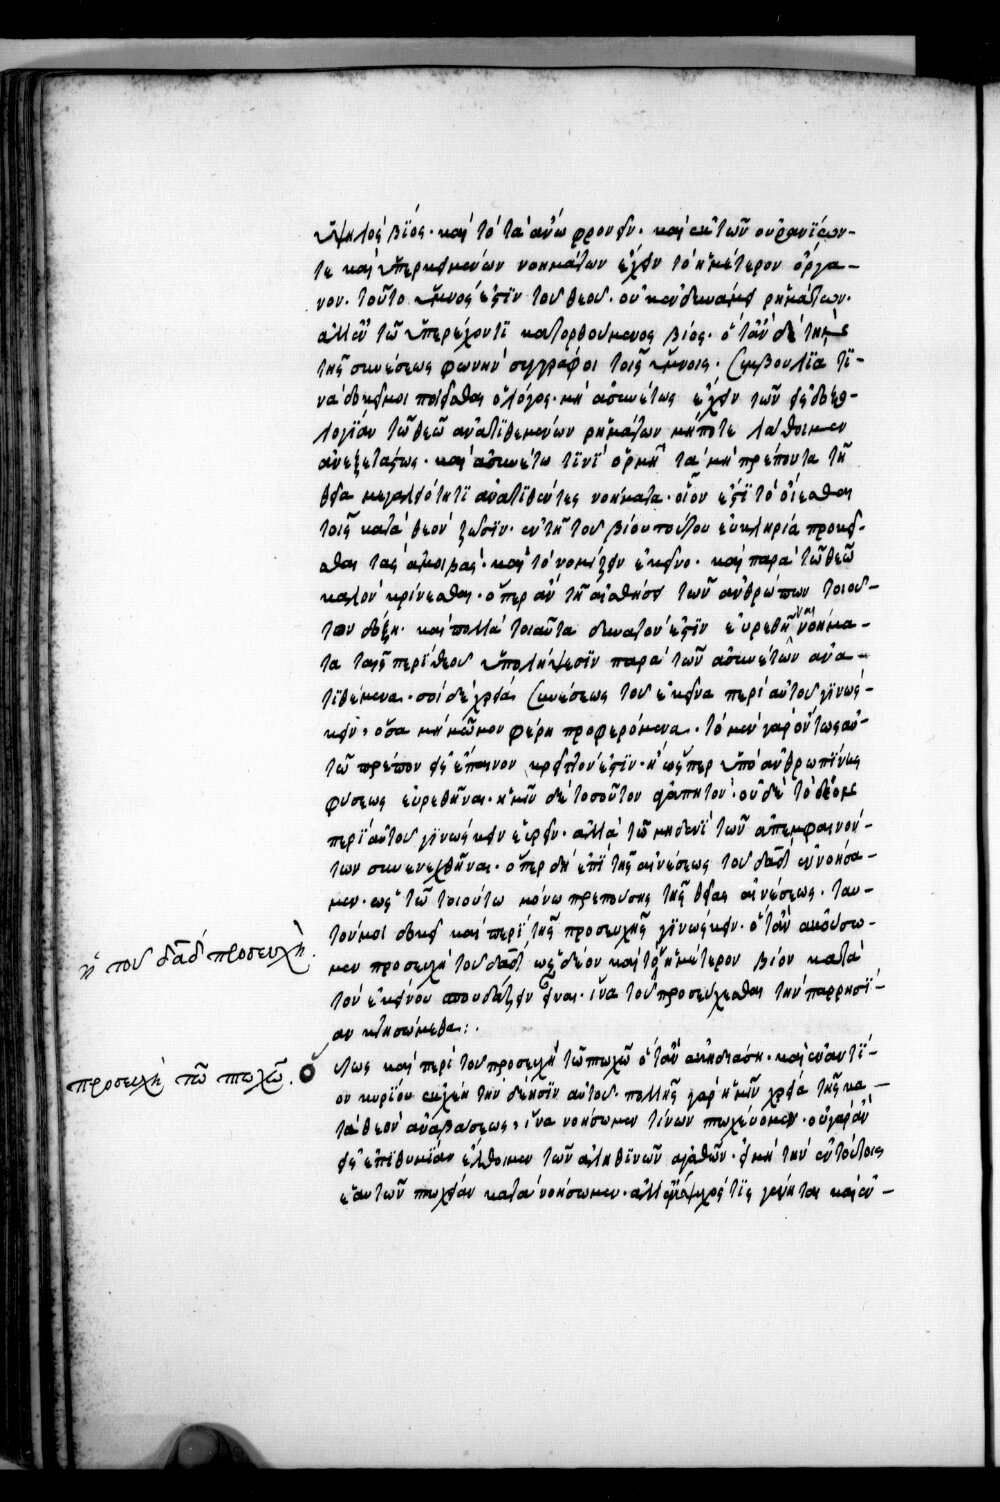 ὑψηλὸς βίος· καὶ τὸ τὰ ἄνω φρονεῖν· καὶ ἐκ τῶν οὐρανίων-
τε καὶ ὑπερκειμένων νοημάτων ἔχειν τὸ ἡμέτερον ὄργα-
νον. τοῦτο ὕμνος ἐστὶν τοῦ θεοῦ. οὐκ ἐν δυνάμει ῥημάτων.
ἀλλ' ἐν τῶ ὑπερέχοντι κατορθούμενος βίος. ὅταν δὲ τὴν
τῆς συνέσεως φωνὴν συγγράφοι τοῖς ὕμνοις. συμβουλία τι-
νὰ δοκεῖ μοι ποιεῖσθαι ὁ λόγος. μὴ ἀσυνέτως ἔχειν τῶν εἰς δοξο-
λογίαν τῶ θεῶ ἀνατιθεμένων ῥημάτων μήποτε λάθοιμεν
ἀνεξετάστως. καὶ ἀσυνέτω τινὶ ὁρμῆ τὰ μὴ πρέποντα τῆ
θεία μεγαλειότητι ἀνατιθέντες νοήματα. οἷον ἐπὶ τὸ οἴεσθαι
τοῖς κατὰ θεὸν ζῶσιν. ἐν τῆ τοῦ βίου τούτου εὐκληρία προκεῖ-
σθαι τὰς ἀμοιβάς. καὶ τὸ νομίζειν ἐκεῖνο. καὶ παρὰ τῶ θεῶ
καλὸν κρίνεσθαι. ὅπερ ἂν τῆ αἰσθήσει τῶν ἀνθρώπων τοιοῦ-
τον δόξη. καὶ πολλὰ τοιαῦτα δυνατόν ἐστιν εὑρεθῆναι νοήμα-
τα ταῖς περὶ θεοῦ ὑπολήψεσιν παρὰ τῶν ἀσυνέτων ἀνα-
τιθέμενα. σοὶ δὲ χρεία συνέσεως τοῦ ἐκεῖνα περὶ αὐτοῦ γινώσ-
κειν, ὅσα μὴ μῶμον φέρη προφερόμενα. τὸ μὲν γὰρ ὄντως αὐ-
τῶ πρέπον εἰς ἔπαινον κρεῖττόν ἐστιν. ἢ ὥσπερ ὑπὸ ἀνθρωπίνης
φύσεως εὑρεθῆναι. ἡμῖν δὲ τοσοῦτον ἀγαπητόν. οὐδὲ τὸ δέον
περὶ αὐτοῦ γινώσκειν εὑρεῖν. ἀλλὰ τῶ μηδενὶ τῶν ἀπεμφαινόν-
των συνενεχθῆναι. ὅπερ δὴ ἐπὶ τῆς αἰνέσεως τοῦ δαδ ἐνοήσα-
μεν. ὡς τῶ τοιούτω μόνω πρεπούσης τῆς θείας αἰνέσεως. ταυ-
τό μοι δοκεῖ καὶ περὶ τῆς προσευχῆς γινώσκειν. ὅταν ἀκούσω-
μεν προσευχὴ τοῦ δαδ ὡς δέον καὶ τὸν ἡμέτερον βίον κατὰ
τὸν ἐκείνου σπουδάζειν εἶναι. ἵνα τοῦ προσεύχεσθαι τὴν παρρησί-
αν κτησώμεθα:.
ἡ τοῦ δαδ προσευχή.
προσευχὴ τῶ πτωχῶ.
Ὅυτως καὶ περὶ τοῦ προσευχὴ τῶ πτωχῶ ὅταν ἀκηδιάση. καὶ ἐναντί-
ον κυρίου ἐκχέη τὴν δέησιν αὐτοῦ. πολλῆς γὰρ ἡμῖν χρεία τῆς κα-
τὰ θεὸν ἀναβάσεως, ἵνα νοήσωμεν τίνων πτωχεύομεν. οὐ γὰρ ἂν
εἰς ἐπιθυμίαν ἔλθοιμεν τῶν ἀληθινῶν ἀγαθῶν. εἰ μὴ τὴν ἐν τούτοις
ἑαυτῶν πτωχείαν κατανοήσωμεν. τις γένηται καὶ ἐν-